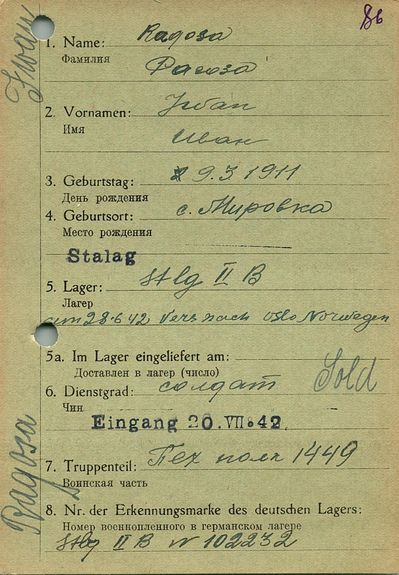 86
Iwan
1. Name: Ragosa
Фамилия Рагоза
2. Vornamen: Iwan
Имя Иван
3. Geburtstag: 9.3.1911
День рождения
4. Geburtsort: с. Мировка
Место рождения
Stalag
5. Lager: Stlg II B
Лагерь
am 28.6.42 Vers. nach Oslo Norwegen
5a. Im Lager eingeliefert am:
Доставлен в лагерь (число)
6. Dienstgrad: солдат Sold
Чин
Eingang 20. VII. 42.
7. Truppenteil: Пех полк 1449
Воинская часть
8. Nr. der Erkennungsmarke des deutschen Lagers:
Номер военнопленного в германском лагере
Stlg II B N 102232
Ragosa